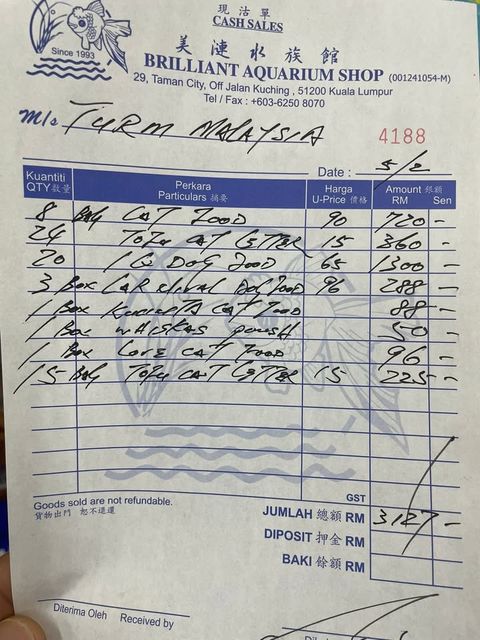 現沽單
CASH SALES
Since 1993
美漣水族館
BRILLIANT AQUARIUM SHOP (001241054-M)
29, Taman City, Off Jalan Kuching, 51200 Kuala Lumpur
Tel / Fax : +603-6250 8070
M/s TURM MALAYSIA
4188
Date : 5/2
Kuantiti QTY 數量 Perkara Particulars 摘要 Harga U-Price 價格 Amount 銀額 RM Sen
8 Bag CAT FOOD 90 720 -
24 TOFU CAT LETTER 15 360 -
20 DOG FOOD 65 1300 -
3 Box CARDINAL DOG FOOD 96 288 -
1 Box CAT FOOD 88 -
1 Box WHISKAS POUSH 50 -
1 Box LOVE CAT FOOD 96 -
15 Bag TOFU CAT LETTER 15 225 -
GST
Goods sold are not refundable.
貨物出門 恕不退還
JUMLAH 總額 RM 3127 -
DIPOSIT 押金 RM
BAKI 餘額 RM
Diterima Oleh Received by